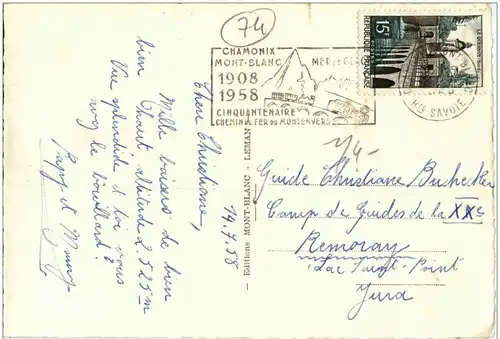 74
CHAMONIX
MONT-BLANC
MER DE GLACE
1908
1958
CINQUANTENAIRE
CHEMIN DE FER DU MONTENVERS
REPUBLIQUE FRANCAISE
15F
LE QUERCY
Hte SAVOIE
Chère Christiane,
14.7.58
Mille baisers de bien
bien haut altitude 2.525 m
Vue splendide et toi vous
avez le brouillard?
Papy et Mamy
Editions MONT-BLANC - LEMAN
Guide Christiane Buchecker
Camp de Guides de la XXe
Remoray
Lac Saint-Point
Jura